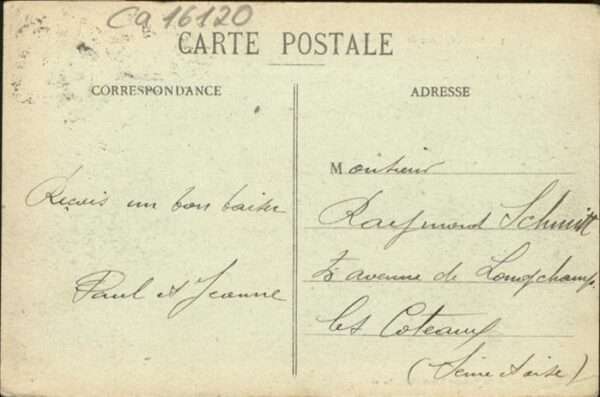 Ca 16120
CARTE POSTALE
CORRESPONDANCE
ADRESSE
Reçois un bon baiser
Paul et Jeanne
Monsieur
Raymond Schmitt
avenue de Longchamp.
les Coteaux
(Seine et oise)